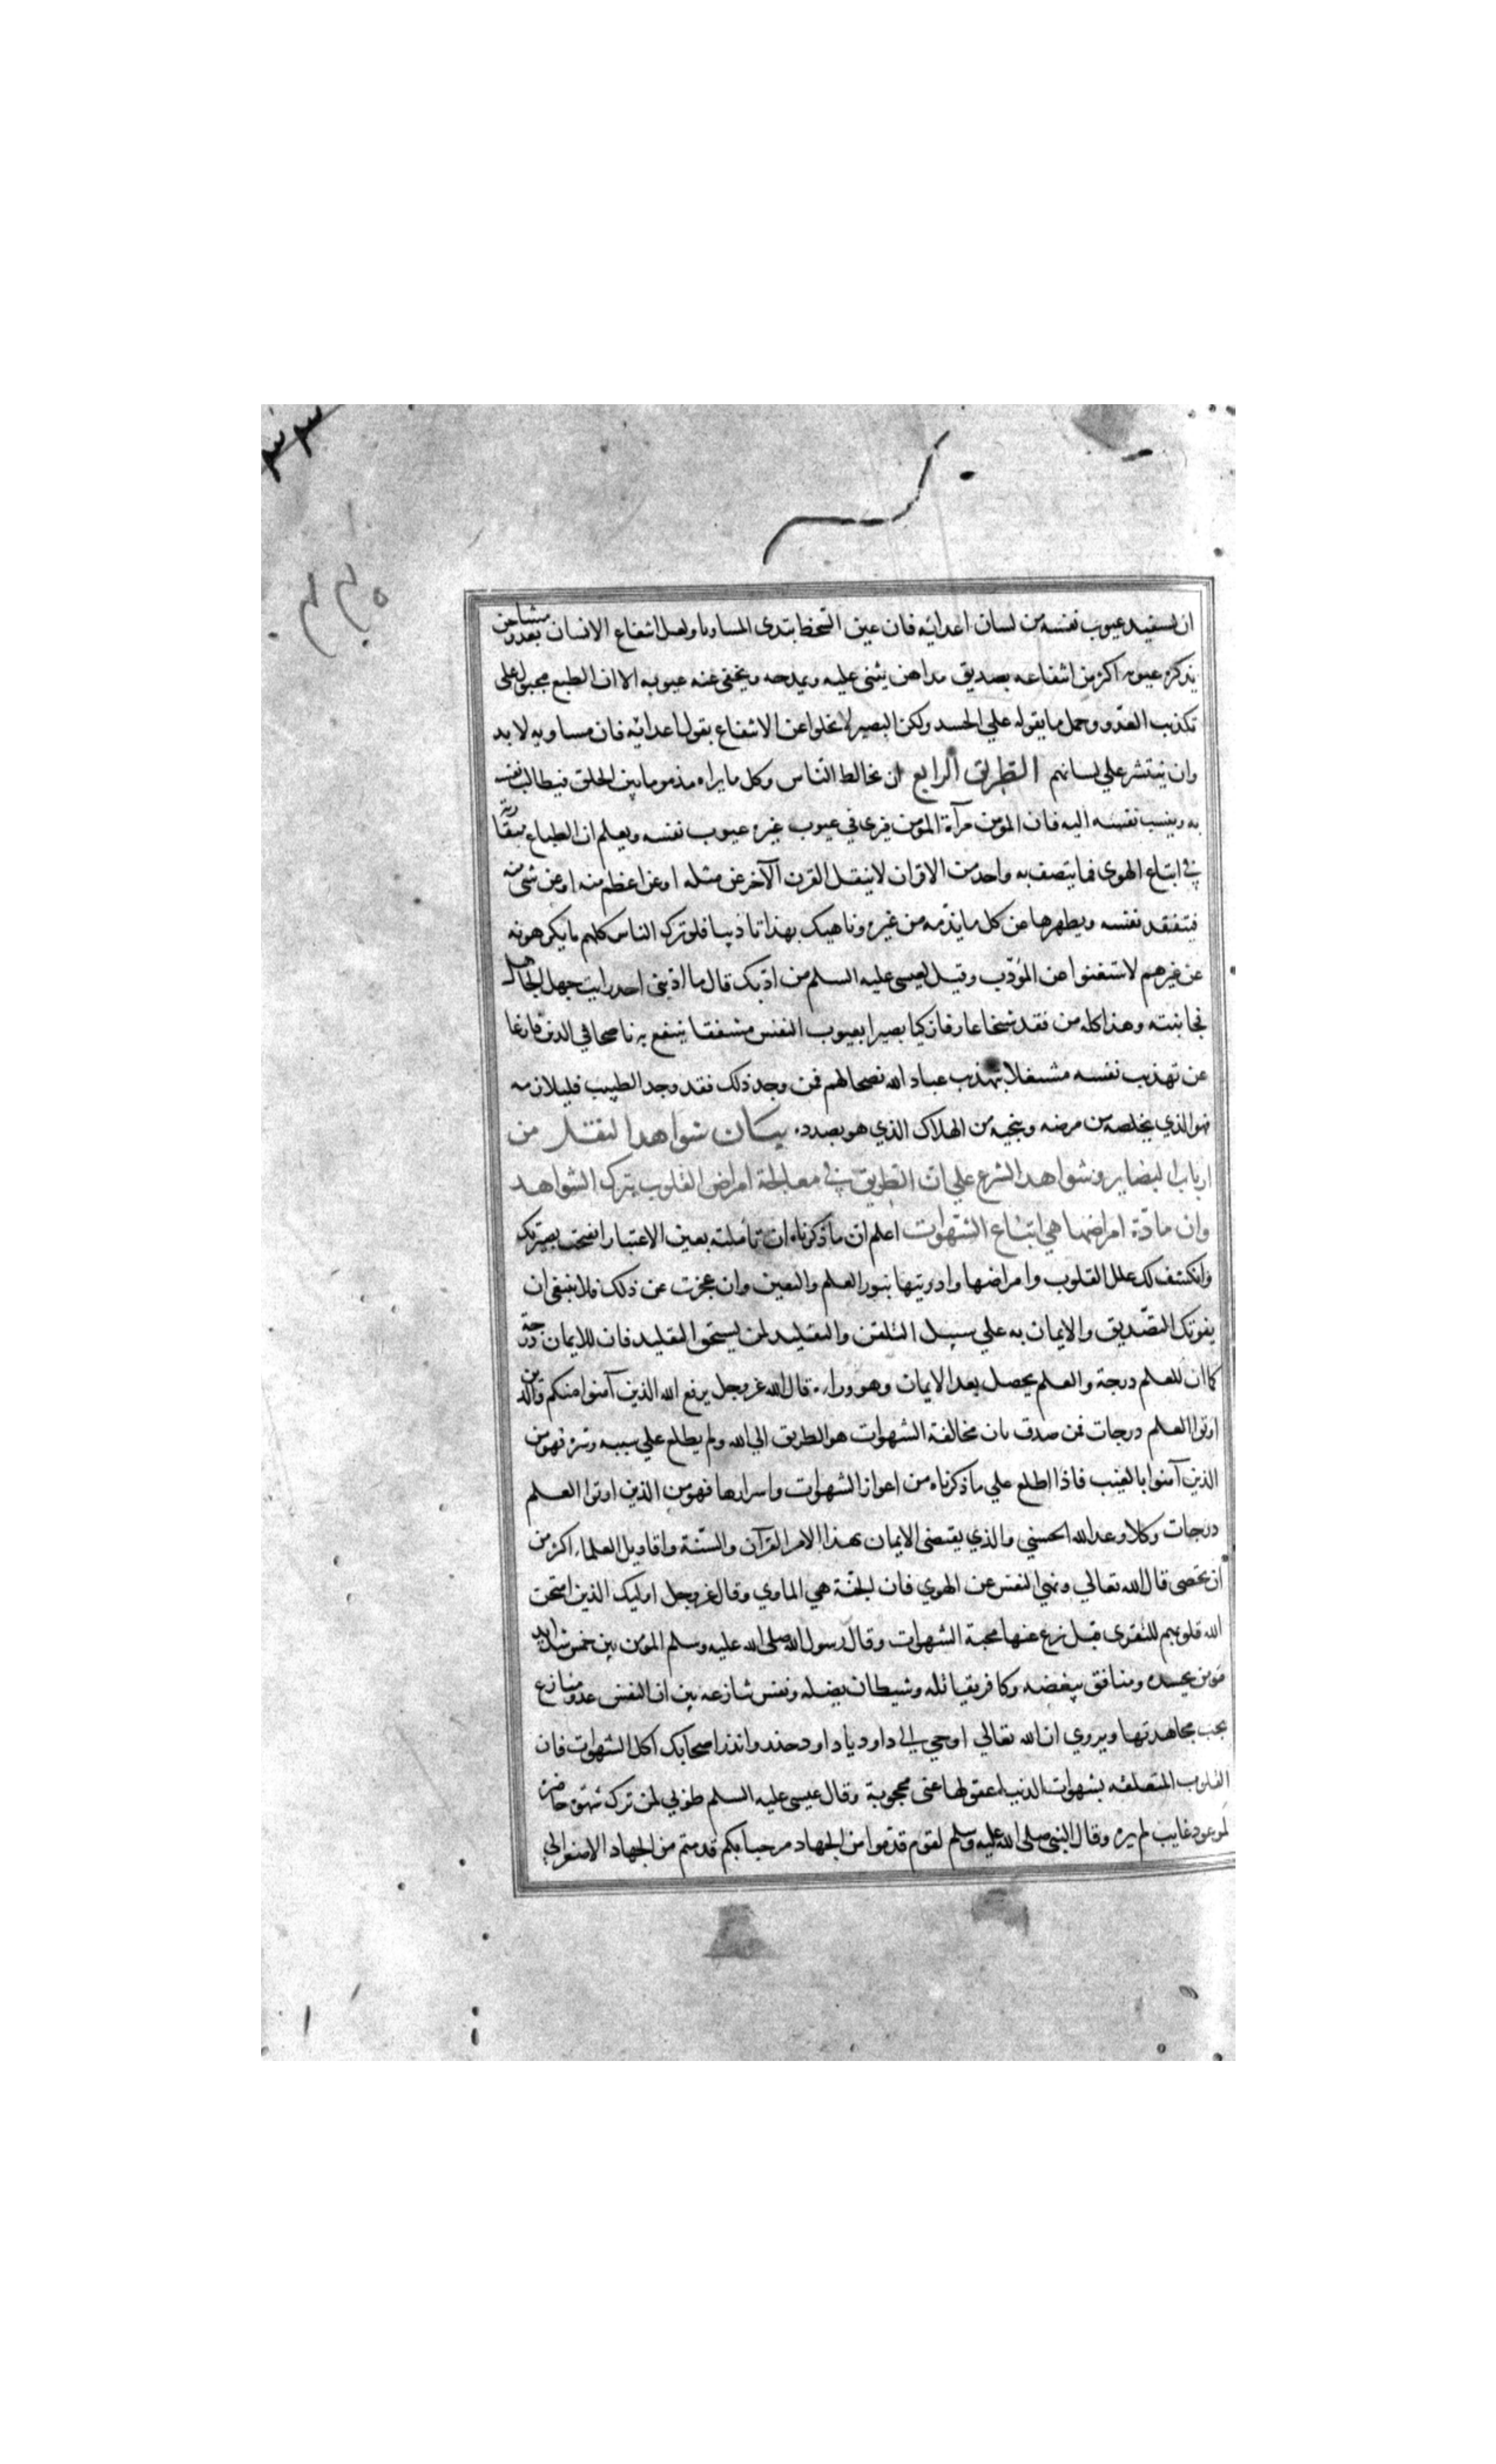 ان يستفيد عيوب نفسه من لسان اعدائه فان عين السخط تبدى المساويا ولعل انتفاع الانسان بعدو مشاحن
يذكره عيوبه اكثر من انتفاعه بصديق مداهن يثنى عليه ويمدحه ويخفى عنه عيوبه الا ان الطبع مجبول على
تكذيب العدو وحمل ما يقوله علي الحسد ولكن البصير لا يخلوا عن الانتفاع بقول اعدائه فان مساويه لا بد
وان ينتشر علي لسانهم الطريق الرابع ان يخالط الناس وكل ما يراه مذموما بين الخلق فيطالب نفسه
به وينسب نفسه اليه فان المؤمن مرآة المؤمن فيرى في عيوب غيره عيوب نفسه ويعلم ان الطباع متقاربة
في اتباع الهوى فما يتصف به واحد من الاقران لا ينفك القرن الآخر عن مثله او عن اعظم منه او عن شئ منه
فيتفقد نفسه ويطهرها عن كل ما يذمه من غيره وناهيك بهذا تاديبا فلو ترك الناس كلهم ما يكرهونه
عن غيرهم لاستغنوا عن المؤدب وقيل لعيسى عليه السلم من ادبك قال ما ادبنى احد رايت جهل الجاهل
فجانبته وهذا كله من فقد شيخا عارفا زكيا بصيرا بعيوب النفس مشفقا ينتفع به ناصحا في الدين فارغا
عن تهذيب نفسه مشتغلا بتهذيب عباد الله نصحا لهم فمن وجد ذلك فقد وجد الطبيب فليلازمه
فهو الذي يخلصه من مرضه وينجيه من الهلاك الذي هو بصدده بيان شواهد النقل من
ارباب البصاير وشواهد الشرع علي ان الطريق في معالجة امراض القلوب بترك الشواهد
وان مادة امراضها هي اتباع الشهوات اعلم ان ما ذكرناه ان تأملته بعين الاعتبار انفتحت بصيرتك
وانكشف لك علل القلوب وامراضها وادويتها بنور العلم واليقين وان عجزت عن ذلك فلا ينبغى ان
يفوتك التصديق والايمان به علي سبيل التلقن والتقليد لمن يستحق التقليد فان للايمان درجة
كما ان للعلم درجة والعلم يحصل بعد الايمان وهو وراءه قال الله عز وجل يرفع الله الذين آمنوا منكم والذين
اوتوا العلم درجات فمن صدق بان مخالفة الشهوات هو الطريق الي الله ولم يطلع علي سببه وسره فهو من
الذين آمنوا بالغيب فاذا اطلع علي ما ذكرناه من اعواز الشهوات واسرارها فهو من الذين اوتوا العلم
درجات وكلا وعد الله الحسني والذي يقتضى الايمان بهذا الامر القرآن والسنة واقاويل العلماء اكثر من
ان يحصى قال الله تعالي ونهي النفس عن الهوي فان الجنة هي الماوي وقال عز وجل اوليك الذين امتحن
الله قلوبهم للتقوى قيل نزع عنها محبة الشهوات وقال رسول الله صلى الله عليه وسلم المؤمن بين خمس شدايد
مؤمن يحسده ومنافق يبغضه وكافر يقاتله وشيطان يضله ونفس تنازعه بين ان النفس عدو منازع
يجب مجاهدتها ويروي ان الله تعالي اوحي الي داود يا داود حذر وانذر اصحابك اكل الشهوات فان
القلوب المتعلقه بشهوات الدنيا عقولها عنى محجوبة وقال عيسى عليه السلم طوبي لمن ترك شهوة حاضرة
لموعود غايب لم يره وقال النبي صلى الله عليه وسلم لقوم قدموا من الجهاد مرحبا بكم قدمتم من الجهاد الاصغر الي